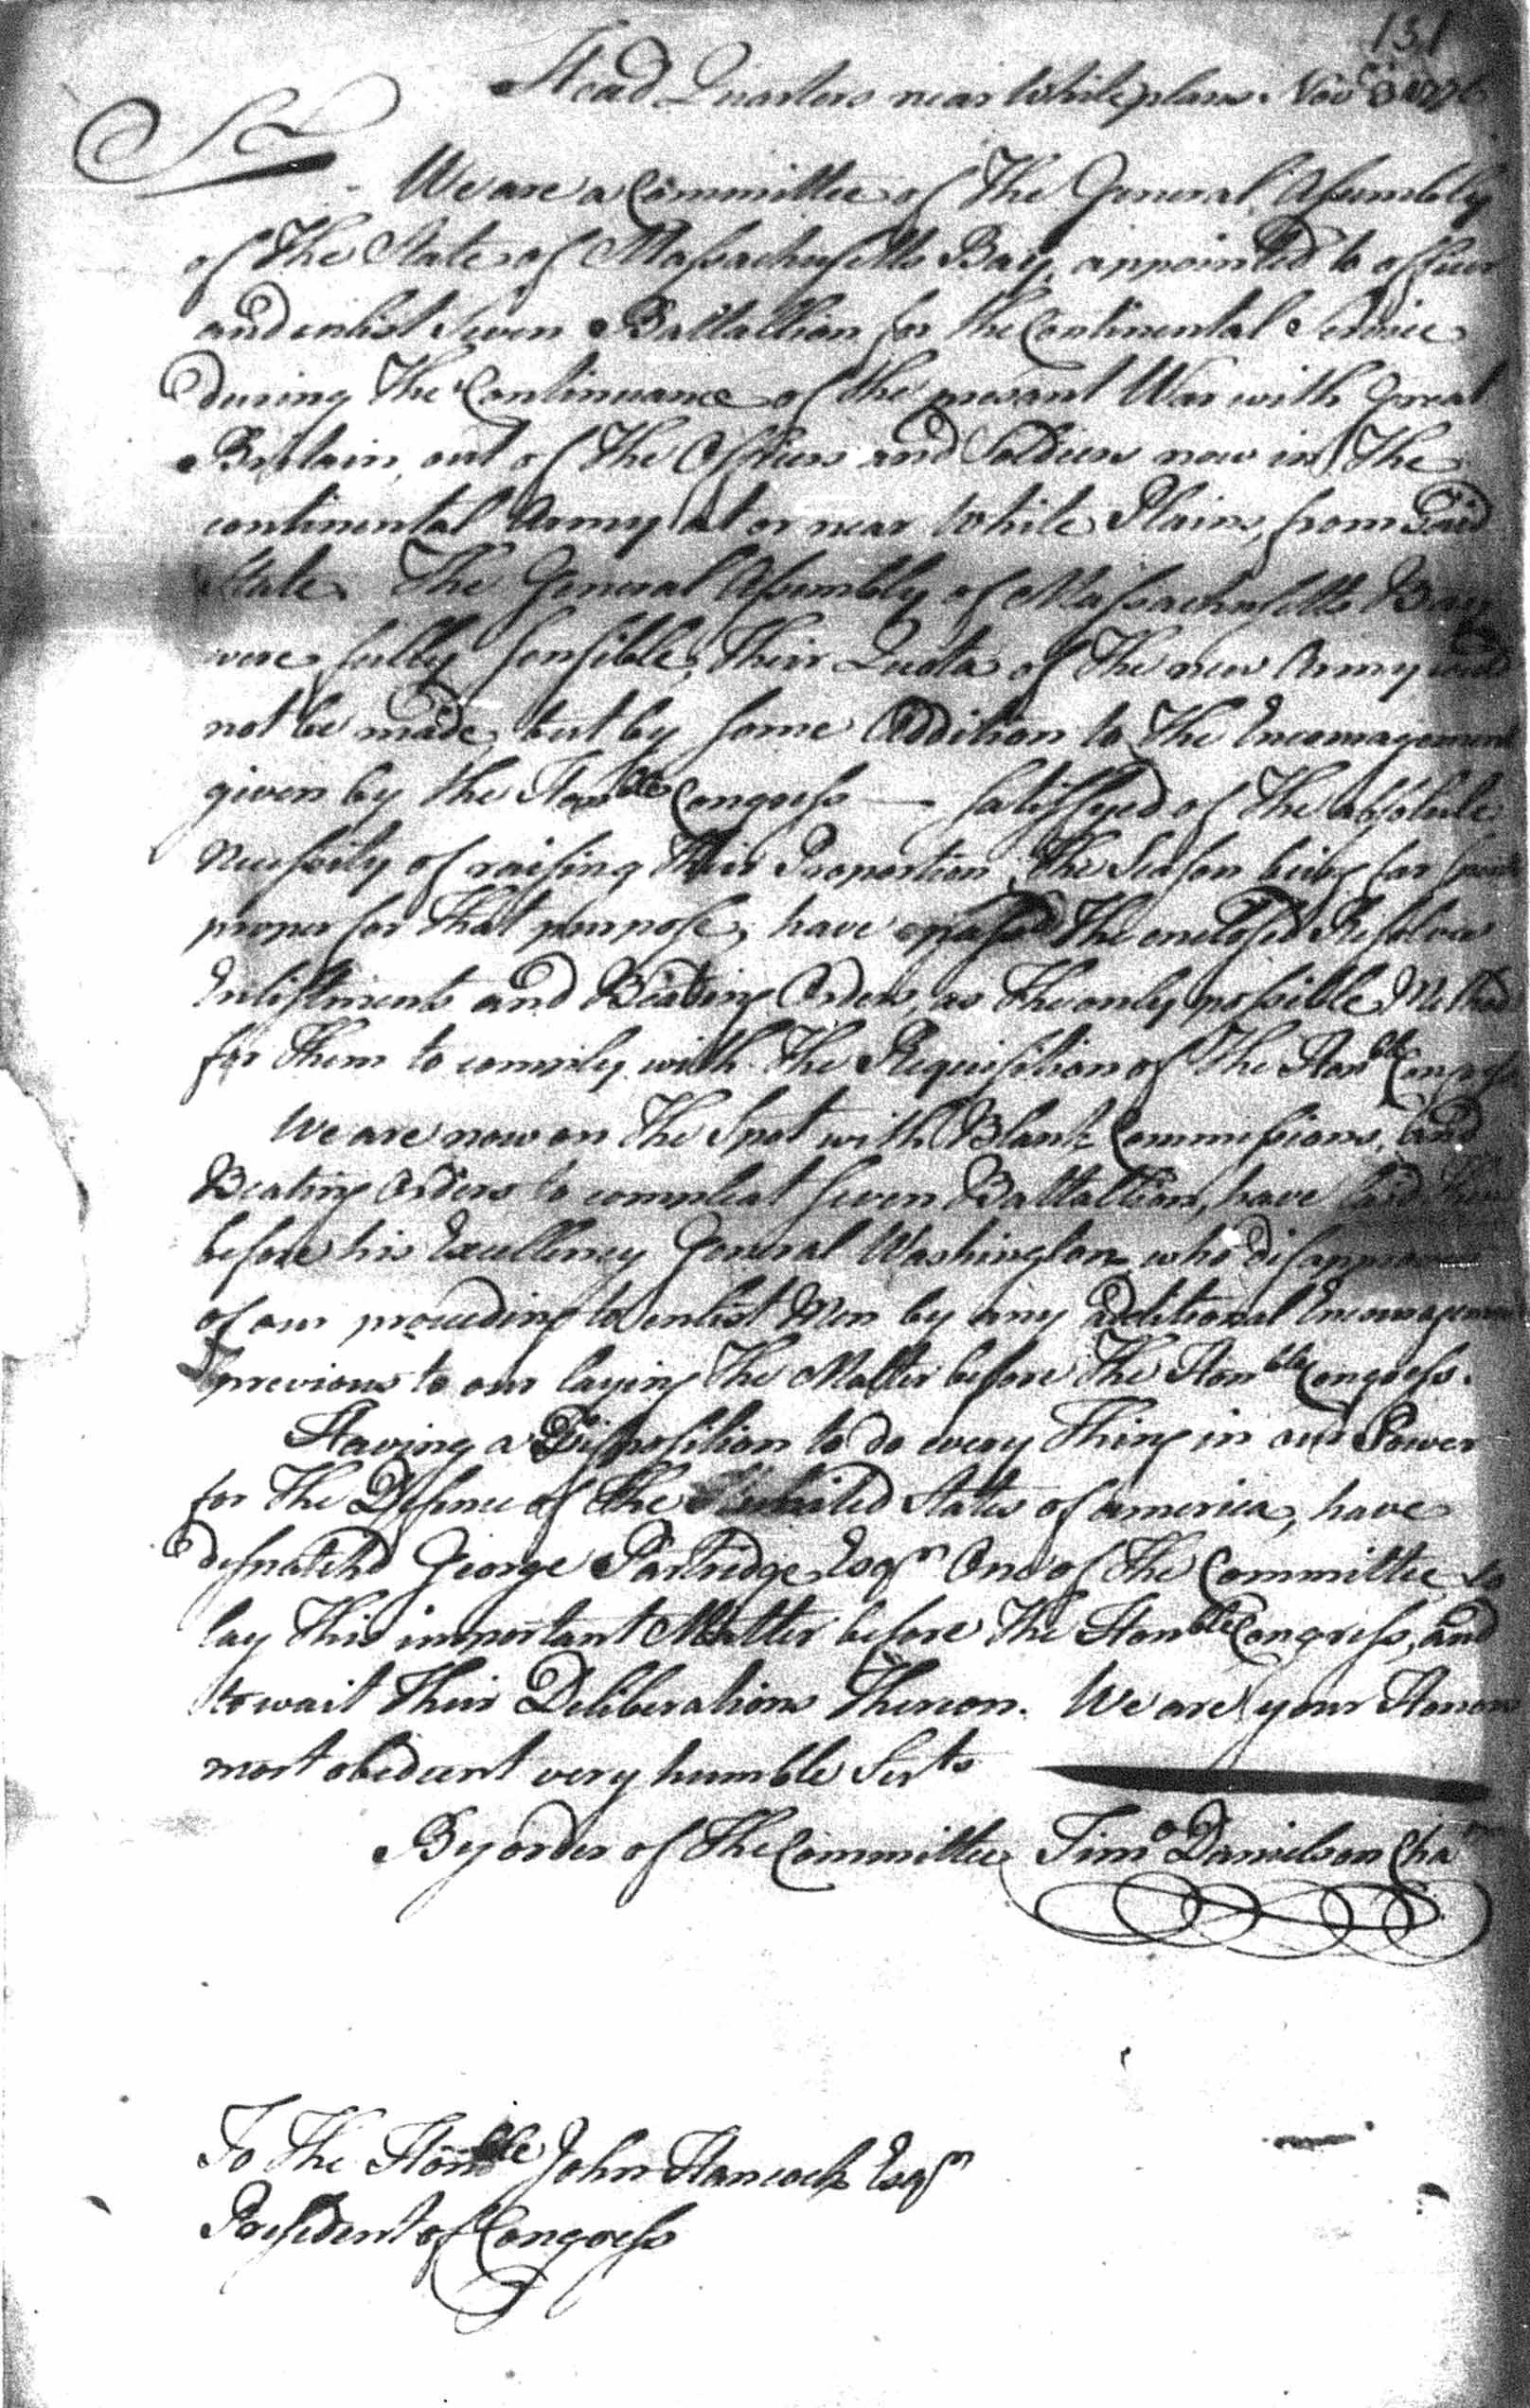 131
Head Quarters near White plans. Nov 3d 1776
Sr
We are a Committee of The General Assembly
of The State of Massachusetts Bay, appointed to officer
and enlist Seven Battallion for the Continental Service
during The Continuance of the present War with Great
Britain, out of The Officers and Soldiers now in The
continental Army at or near White Plains, from Said
State. The General Assembly of Massachusetts Bay
were fully sensible, Their Quota of The new Army
not be made, but by some Addition to The Encouragement
given by the Honble Congress — satisfyed of The absolute
Necessity of raising Their Proportion, The Season being far spent
proper for That purpose, have The enclosed Resolves
Enlistments and Beating Orders, as The only possible Method
for Them to comply with The Requisition of The Honble Congress
We are now on The Spot with Blank Commissions, and
Beating Orders to compleat Seven Battallion, have laid them
before his Excellency General Washington who disapproves
of our proceeding to enlist Men by any additional Encouragement
previous to our laying The Matter before The Honble Congress.
Having a Disposition to do every Thing in our Power
for The Defence of The united States of America, have
despatchd George Partridge Esqr One of The Committee to
lay This important Matter before The Honble Congress, and
to wait Their Deliberations Thereon. We are your Honors
most obedient very humble Serts
By order of The Committee Timo Danielson Chamn
To The Honble John Hancock Esqr
President of Congress